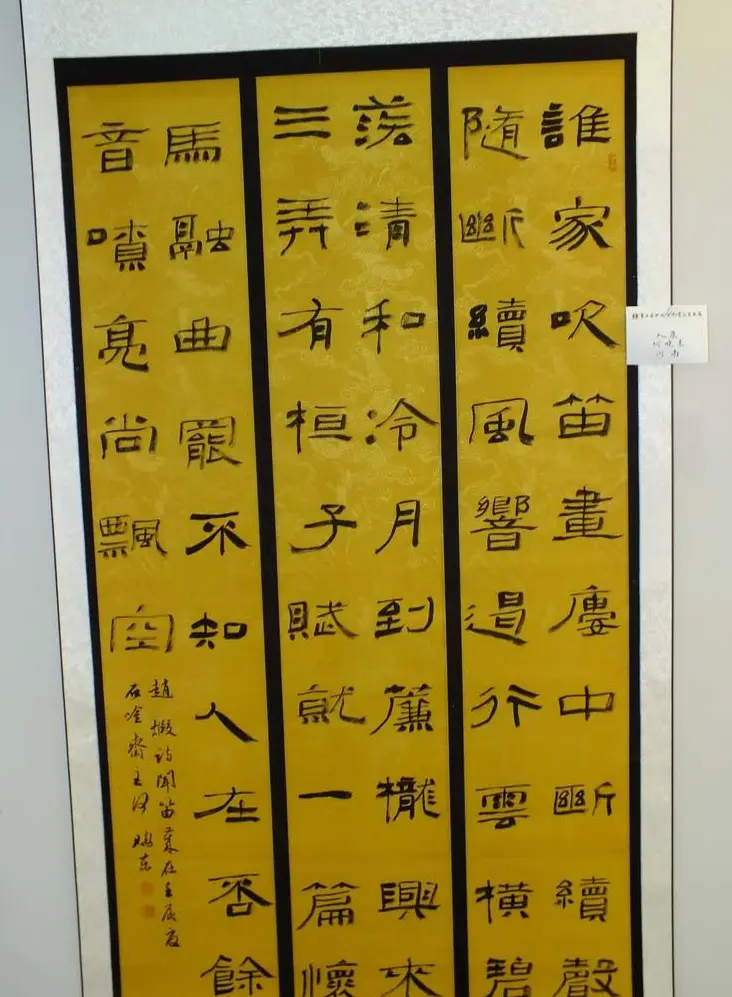 誰家吹笛畫廔中斷續聲
隨斷續風響遏行雲橫碧
落清和冷月到薕櫳興來
三弄有桓子賦就一篇懷
馬融曲罷不知人在否餘
音嘹亮尚飄空
趙嘏詩聞笛歲在壬辰夏
齋主何曉東
入展
何曉東
河南